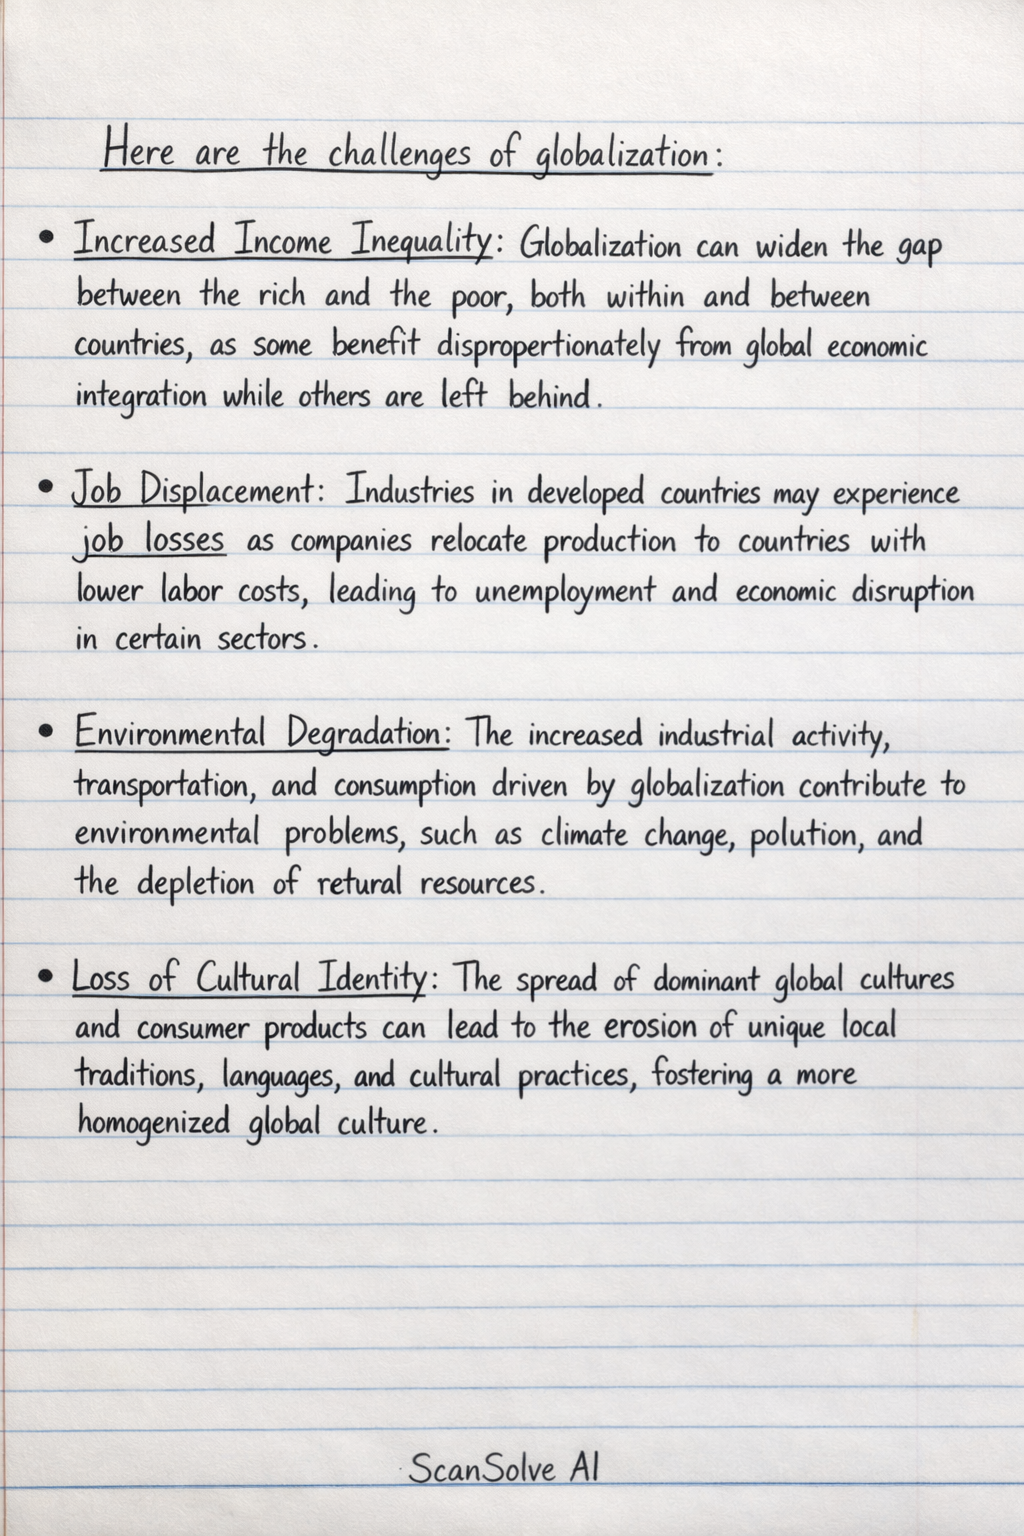 Here are the challenges of globalization:
• Increased Income Inequality: Globalization can widen the gap
between the rich and the poor, both within and between
countries, as some benefit dispropertionately from global economic
integration while others are left behind.
• Job Displacement: Industries in developed countries may experience
job losses as companies relocate production to countries with
lower labor costs, leading to unemployment and economic disruption
in certain sectors.
• Environmental Degradation: The increased industrial activity,
transportation, and consumption driven by globalization contribute to
environmental problems, such as climate change, polution, and
the depletion of retural resources.
• Loss of Cultural Identity: The spread of dominant global cultures
and consumer products can lead to the erosion of unique local
traditions, languages, and cultural practices, fostering a more
homogenized global culture.
ScanSolve AI